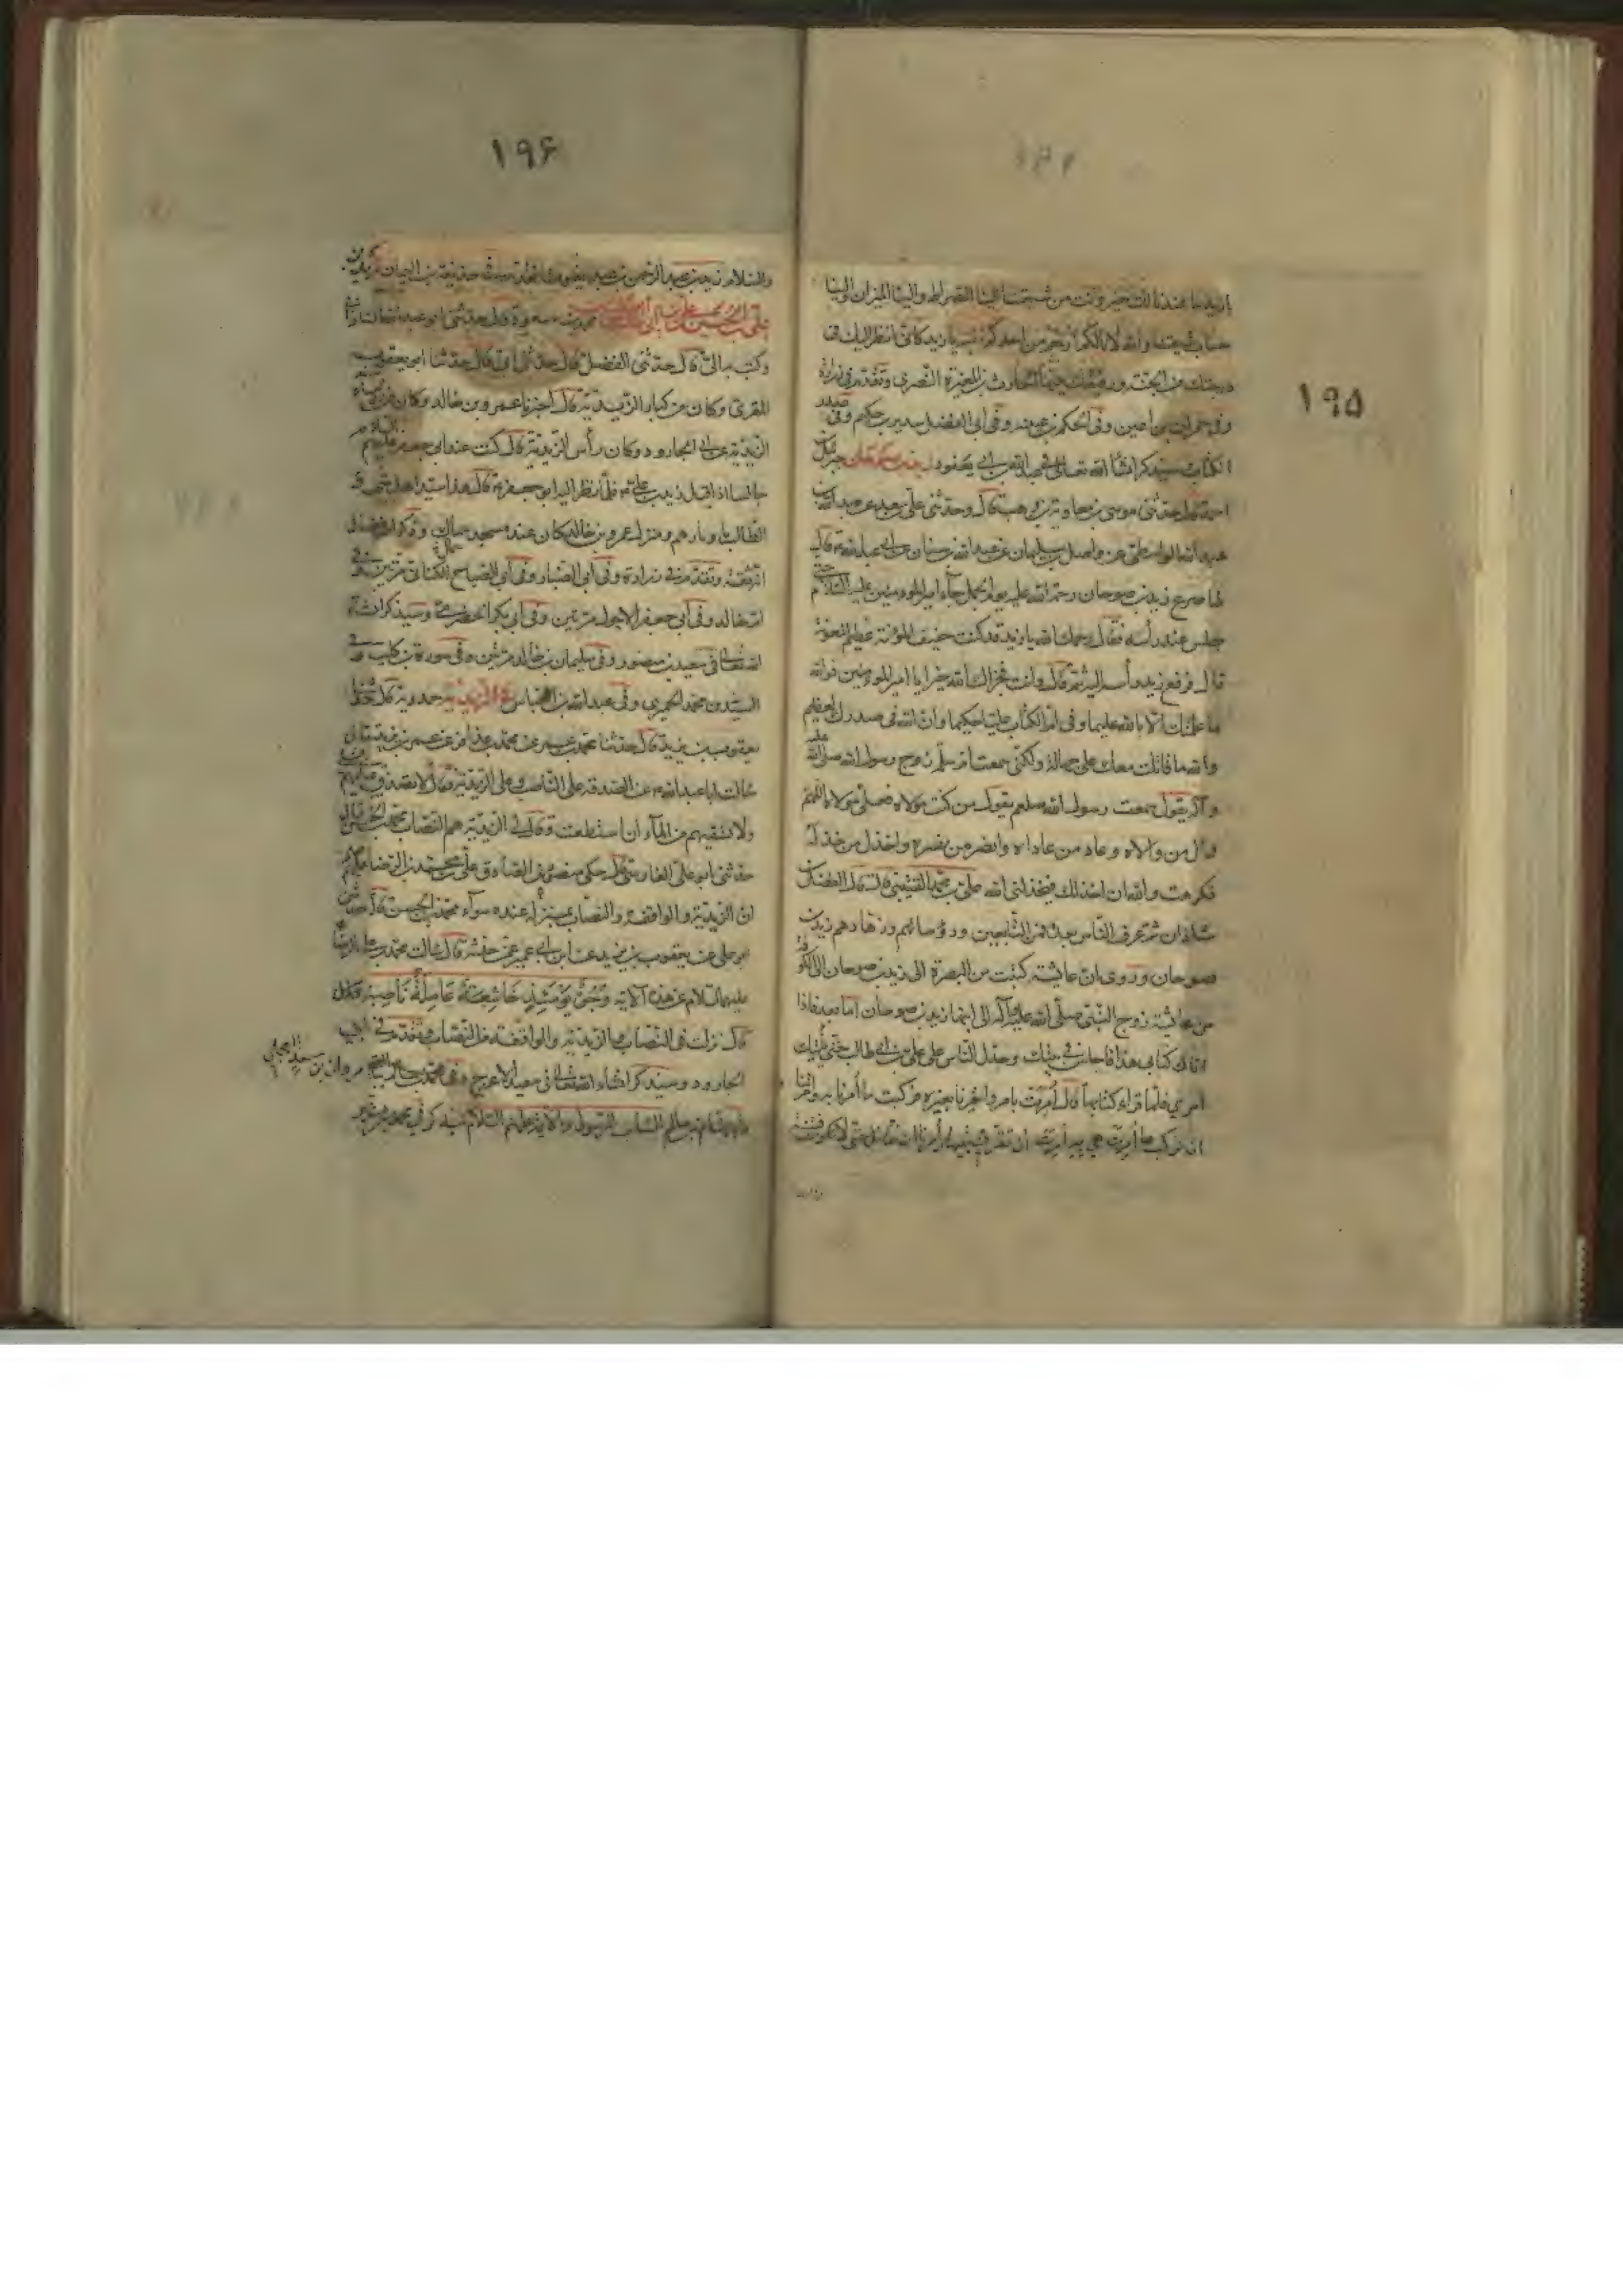 ١٩٥
يا زيد ما عندنا لك خير وأنت من شيعتنا إلينا الصراط وإلينا الميزان وإلينا
حساب شيعتنا والله لأنا لكم أرحم من أحدكم بنفسه يا زيد كأني أنظر إليك في
درجتك من الجنة ورفيقك فيها الحارث بن المغيرة النصري وتقدم في زرارة
وفي حمران بن أعين وفي الحكم بن عيينة وفي أبي الفضل سدير بن حكيم وفي صدر
الكتاب سيذكر إنشاء الله تعالى في عبد الله بن أبي يعفور زيد بن صوحان جبرئيل بن
أحمد قال حدثني موسى بن معاوية بن وهب قال وحدثني علي بن معبد عن عبيد الله بن
عبد الله الواسطي عن واصل بن سليمان عن عبد الله بن سنان عن أبي عبد الله ع قال
لما صرع زيد بن صوحان رحمة الله عليه يوم الجمل جاء أمير المؤمنين عليه السلام حتى
جلس عند رأسه فقال رحمك الله يا زيد قد كنت خفيف المؤنة عظيم المعونة
قال فرفع زيد رأسه إليه ثم قال وأنت فجزاك الله خيرا يا أمير المؤمنين فوالله
ما علمتك إلا بالله عليما وفي أم الكتاب عليا حكيما وأن الله في صدرك لعظيم
والله ما قاتلت معك على جهالة ولكني سمعت أم سلمة زوج رسول الله صلى الله عليه
وآله يقول سمعت رسول الله صلعم يقول من كنت مولاه فعلي مولاه اللهم
وال من والاه وعاد من عاداه وانصر من نصره واخذل من خذله
فكرهت والله أن أخذلك فيخذلني الله علي بن محمد القتيبي قال قال الفضل بن
شاذان ثم عرف الناس بعده فمن التابعين ورؤسائهم وزهادهم زيد بن
صوحان وروي أن عائشة كتبت من البصرة إلى زيد بن صوحان إلى الكوفة
من عائشة زوج النبي صلى الله عليه وآله إلى ابنها زيد بن صوحان أما بعد فإذا
أتاك كتابي هذا فاجلس في بيتك وخذل الناس على علي بن أبي طالب حتى يأتيك
أمري فلما قراء كتابها قال أمرت بأمر وأمرنا بغيره فركبت ما أمرنا به وأمرتنا
أن نركب ما أمرت هي به أمرت أن تقر في بيتها وأمرنا أن نقاتل حتى لا تكون فتنة
١٩۶
والسلام زيد بن عبد الرحمن بن عبد يغوث حذيفة بن اليمان زيد بن
علي بن الحسين بن علي بن أبي طالب محمد بن مسعود قال حدثني أبو عبد الله الشاذاني
وكتب به إلي قال حدثني الفضل قال حدثني أبي قال حدثنا أبو يعقوب
المقري وكان من كبار الزيدية قال أخبرنا عمرو بن خالد وكان من رؤساء
الزيدية عن أبي الجارود وكان رأس الزيدية قال كنت عند أبي جعفر عليهم السلام
جالسا إذ أقبل زيد بن علي ع فلما نظر إليه أبو جعفر ع قال هذا سيد أهل بيتي و
الطالب بأوتارهم ومنزل عمرو بن خالد كان عند مسجد سماك وذكر ابن فضال
أنه ثقة وتقدم في زرارة وفي أبي الصبار وفي أبي الصباح الكناني مرتين وفي
أبي خالد وفي أبي جعفر الأحول مرتين وفي أبي بكر الحضرمي وسيذكر إنشاء
الله تعالى في سعيد بن منصور وفي سليمان بن خالد مرتين وفي سورة بن كليب وفي
السيد بن محمد الحميري وفي عبد الله بن العباس في الزيدية حمدويه قال حدثنا
يعقوب بن يزيد قال حدثنا محمد بن عمر عن محمد بن عذافر عن عمر بن يزيد قال
سألت أبا عبد الله ع عن الصدقة على الناصب وعلى الزيدية فقال لا تصدق عليهم بشيء
ولا تسقيهم من الماء إن استطعت وقال لي الزيدية هم النصاب محمد بن الحسن قال
حدثني أبو علي الفارسي قال حكى منصور عن الصادق علي بن محمد بن الرضا عليهم
أن الزيدية والواقفة والنصاب بمنزلة عنده سواء محمد بن الحسن قال حدثني
أبو علي عن يعقوب بن يزيد عن ابن أبي عمير عمن حدثه قال سألت محمد بن علي الرضا
عليهما السلام عن هذه الآية وجوه يومئذ خاشعة عاملة ناصبة قال
قال نزلت في النصاب والزيدية والواقفة من النصاب وتقدم في أبي
الجارود وسيذكر إنشاء الله تعالى في سعيد الأعرج وفي محمد بن سالم